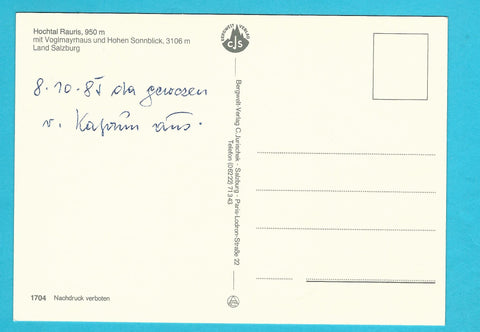 Hochtal Rauris, 950 m
mit Voglmayrhaus und Hohen Sonnblick, 3106 m
Land Salzburg
BERGWELT VERLAG
CJS
8.10.85 da gewesen
v. Kaprun aus.
Bergwelt Verlag C. Jurischek · Salzburg · Paris-Lodron-Straße 22
Telefon (06222) 71343
1704 Nachdruck verboten